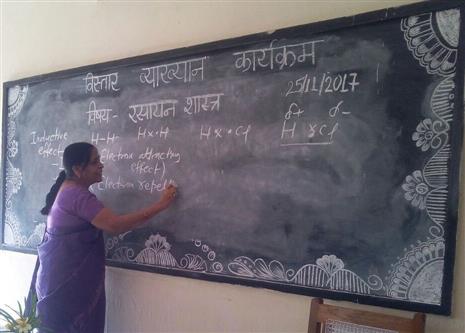 विस्तार व्याख्यान कार्यक्रम
विषय - रसायन शास्त्र 25/11/2017
δ+ δ-
Inductive effect H-H H×•H H ו Cl H ×• Cl
Electron attracting effect)
Electron repell